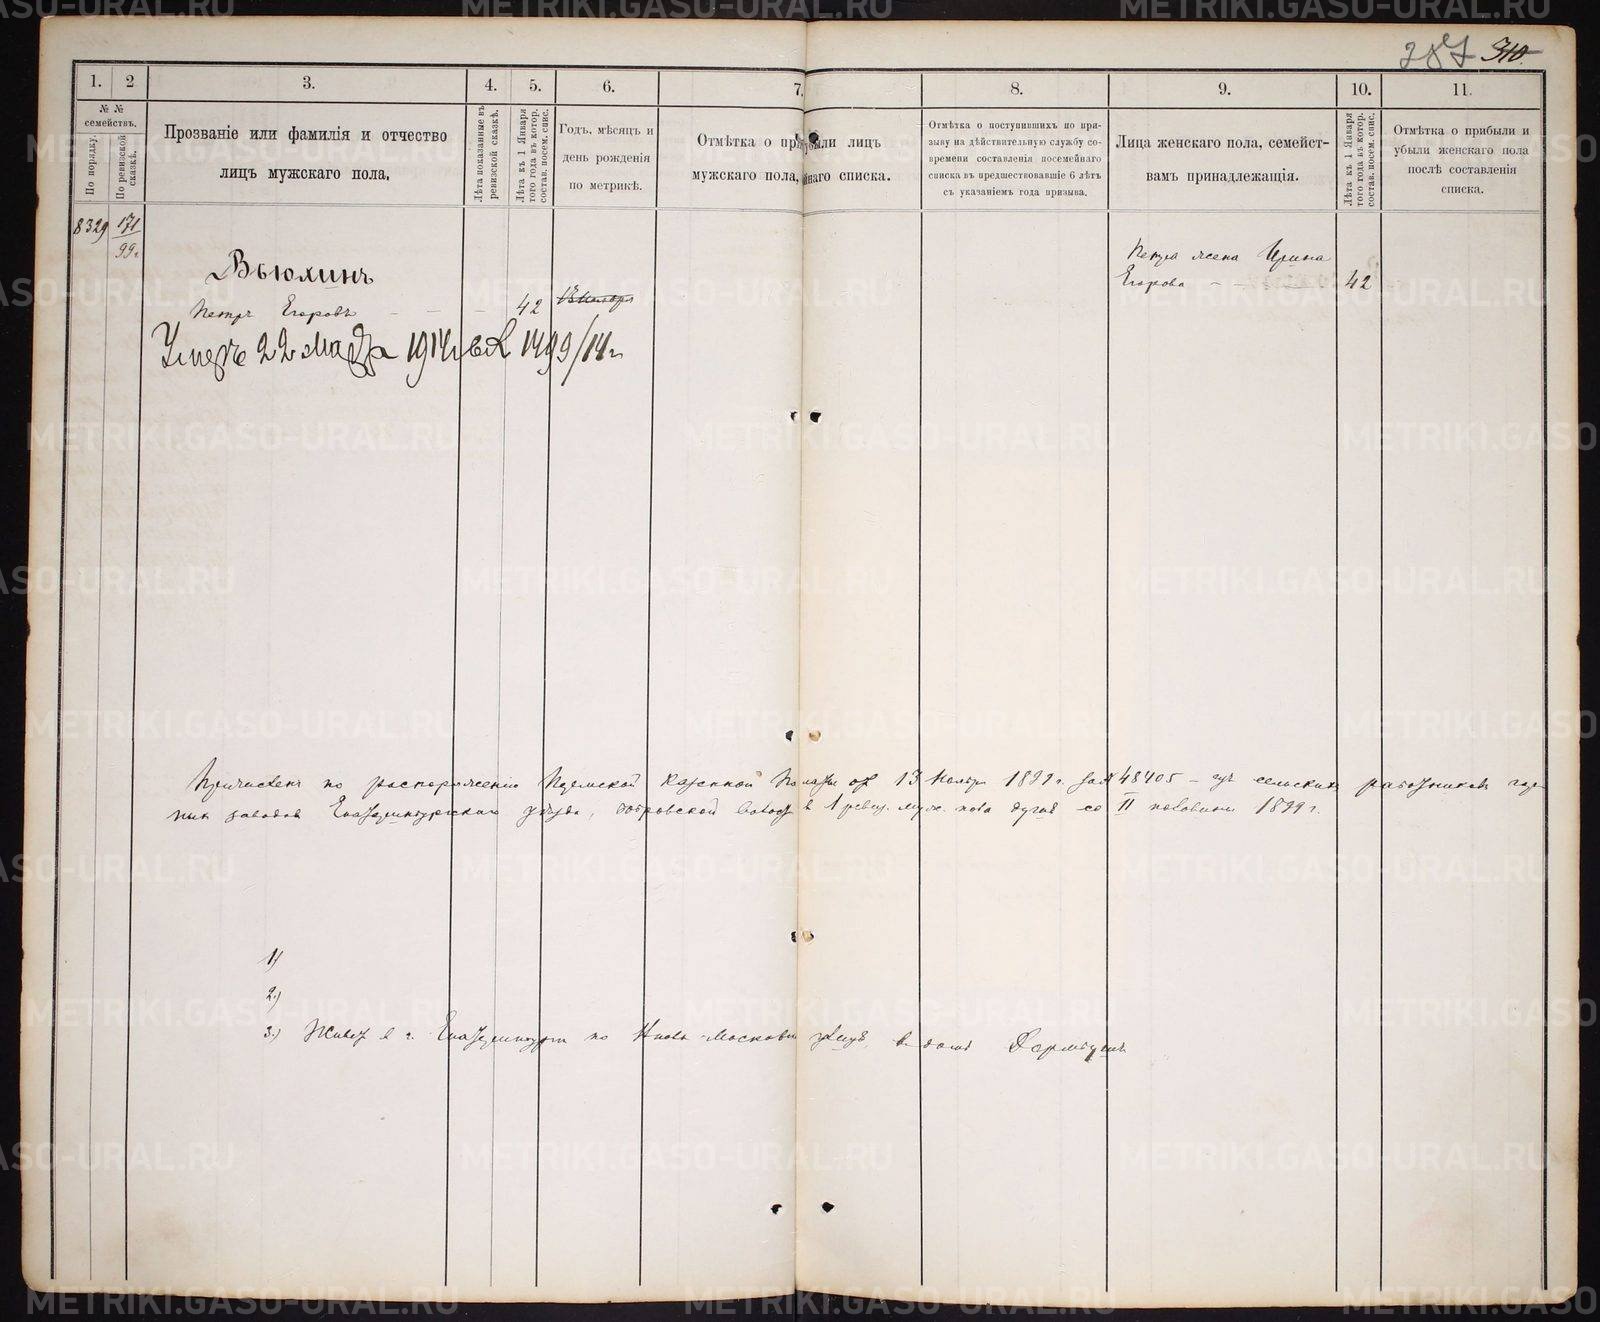 287 310
1. 2 3. 4. 5. 6. 7. 8. 9. 10. 11.
№ №
семействъ.
По порядку.
По ревизской
сказкѣ.
Прозваніе или фамилія и отчество
лицъ мужскаго пола,
Лѣта показанные въ
ревизской сказкѣ.
Лѣта къ 1 Января
того года въ котор.
состав. посем. спис.
Годъ, мѣсяцъ и
день рожденія
по метрикѣ.
Отмѣтка о прибыли лицъ
мужскаго пола, списка.
Отмѣтка о поступившихъ по при-
зыву на дѣйствительную службу со-
времени составленія посемейнаго
списка въ предшествовавшіе 6 лѣтъ
съ указаніемъ года призыва.
Лица женскаго пола, семейст-
вамъ принадлежащія.
Лѣта къ 1 Января
того года въ котор.
состав. посем. спис.
Отмѣтка о прибыли и
убыли женскаго пола
послѣ составленія
списка.
8329 171
99г.
Вьюхинъ
Петръ Егоровъ - - - 42
Умеръ 22 марта 1914г 1499/14г
Петра жена Ирина
Егорова - - 42
Причисленъ по распоряженію Пермской Казенной Палаты от 13 Ноября 1899 г. за № 48405 - изъ сельскихъ работниковъ
заводовъ Екатеринбургскаго уѣзда, волости въ 1 ревиз. муж. пола душѣ со II половины 1899 г.
1)
2.)
3.) Живет в г. Екатеринбурге по Московской улицѣ, в доме
METRIKI.GASO-URAL.RU